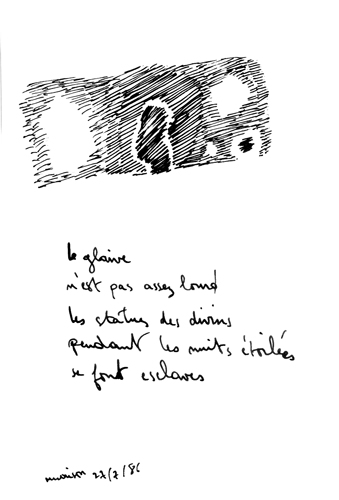 le glaive
n'est pas assez lourd
les statues des divins
pendant les nuits étoilées
se font esclaves
22/7/86